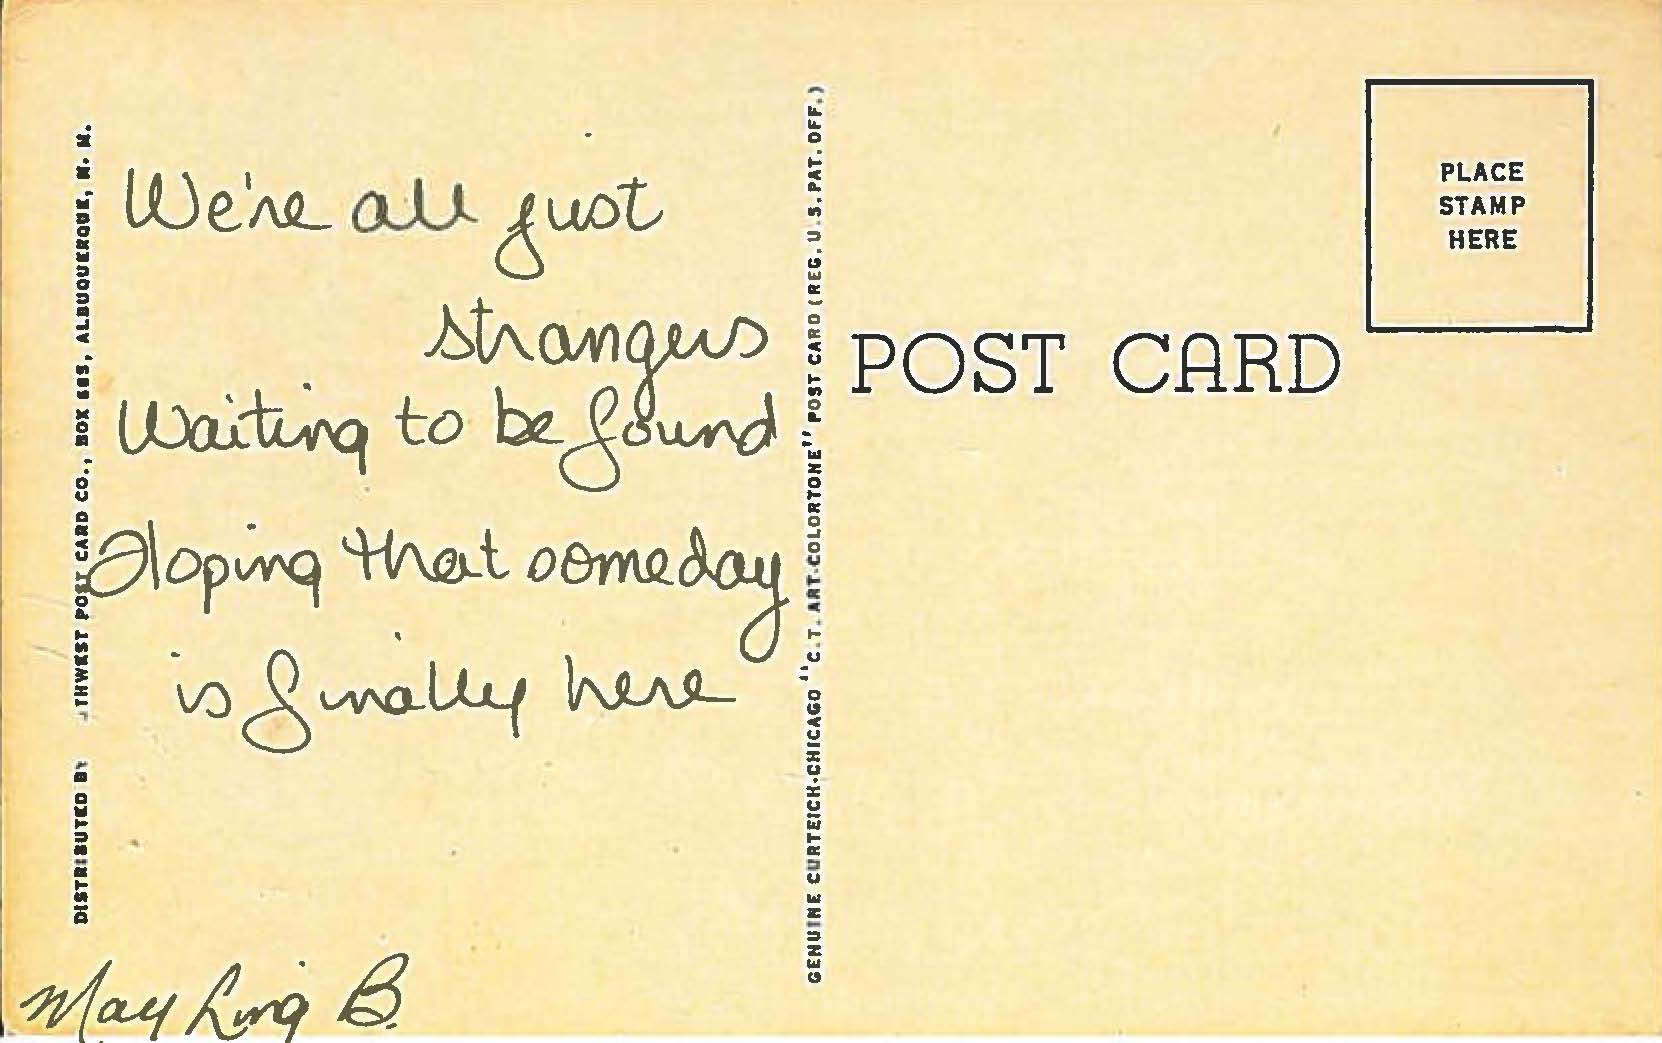 We're all just
strangers
Waiting to be found
Hoping that someday
is finally here
May Ling B.
DISTRIBUTED BY THWEST POST CARD CO., BOX 685, ALBUQUERQUE, N. M.
GENUINE CURTEICH-CHICAGO "C.T. ART-COLORTONE" POST CARD (REG. U.S. PAT. OFF.)
POST CARD
PLACE
STAMP
HERE